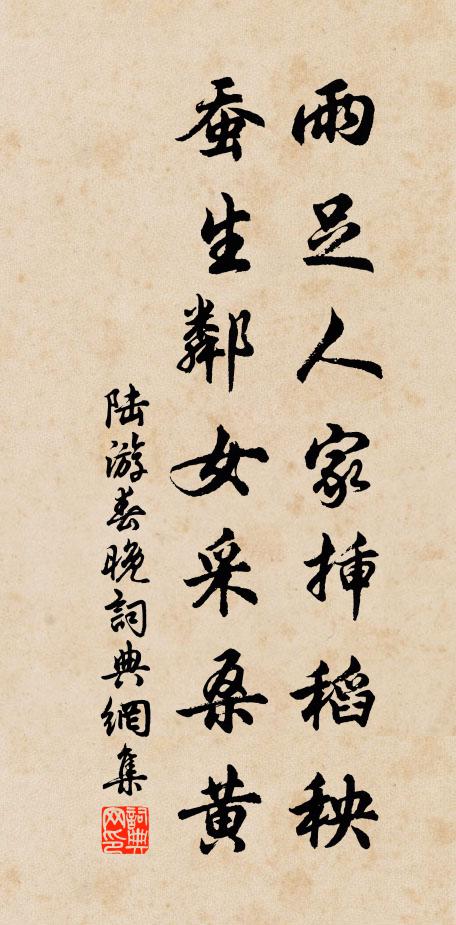 雨足人家插稻秧
蚕生鄰女采桑黄
陆游春晚詞典網集
詞典网印